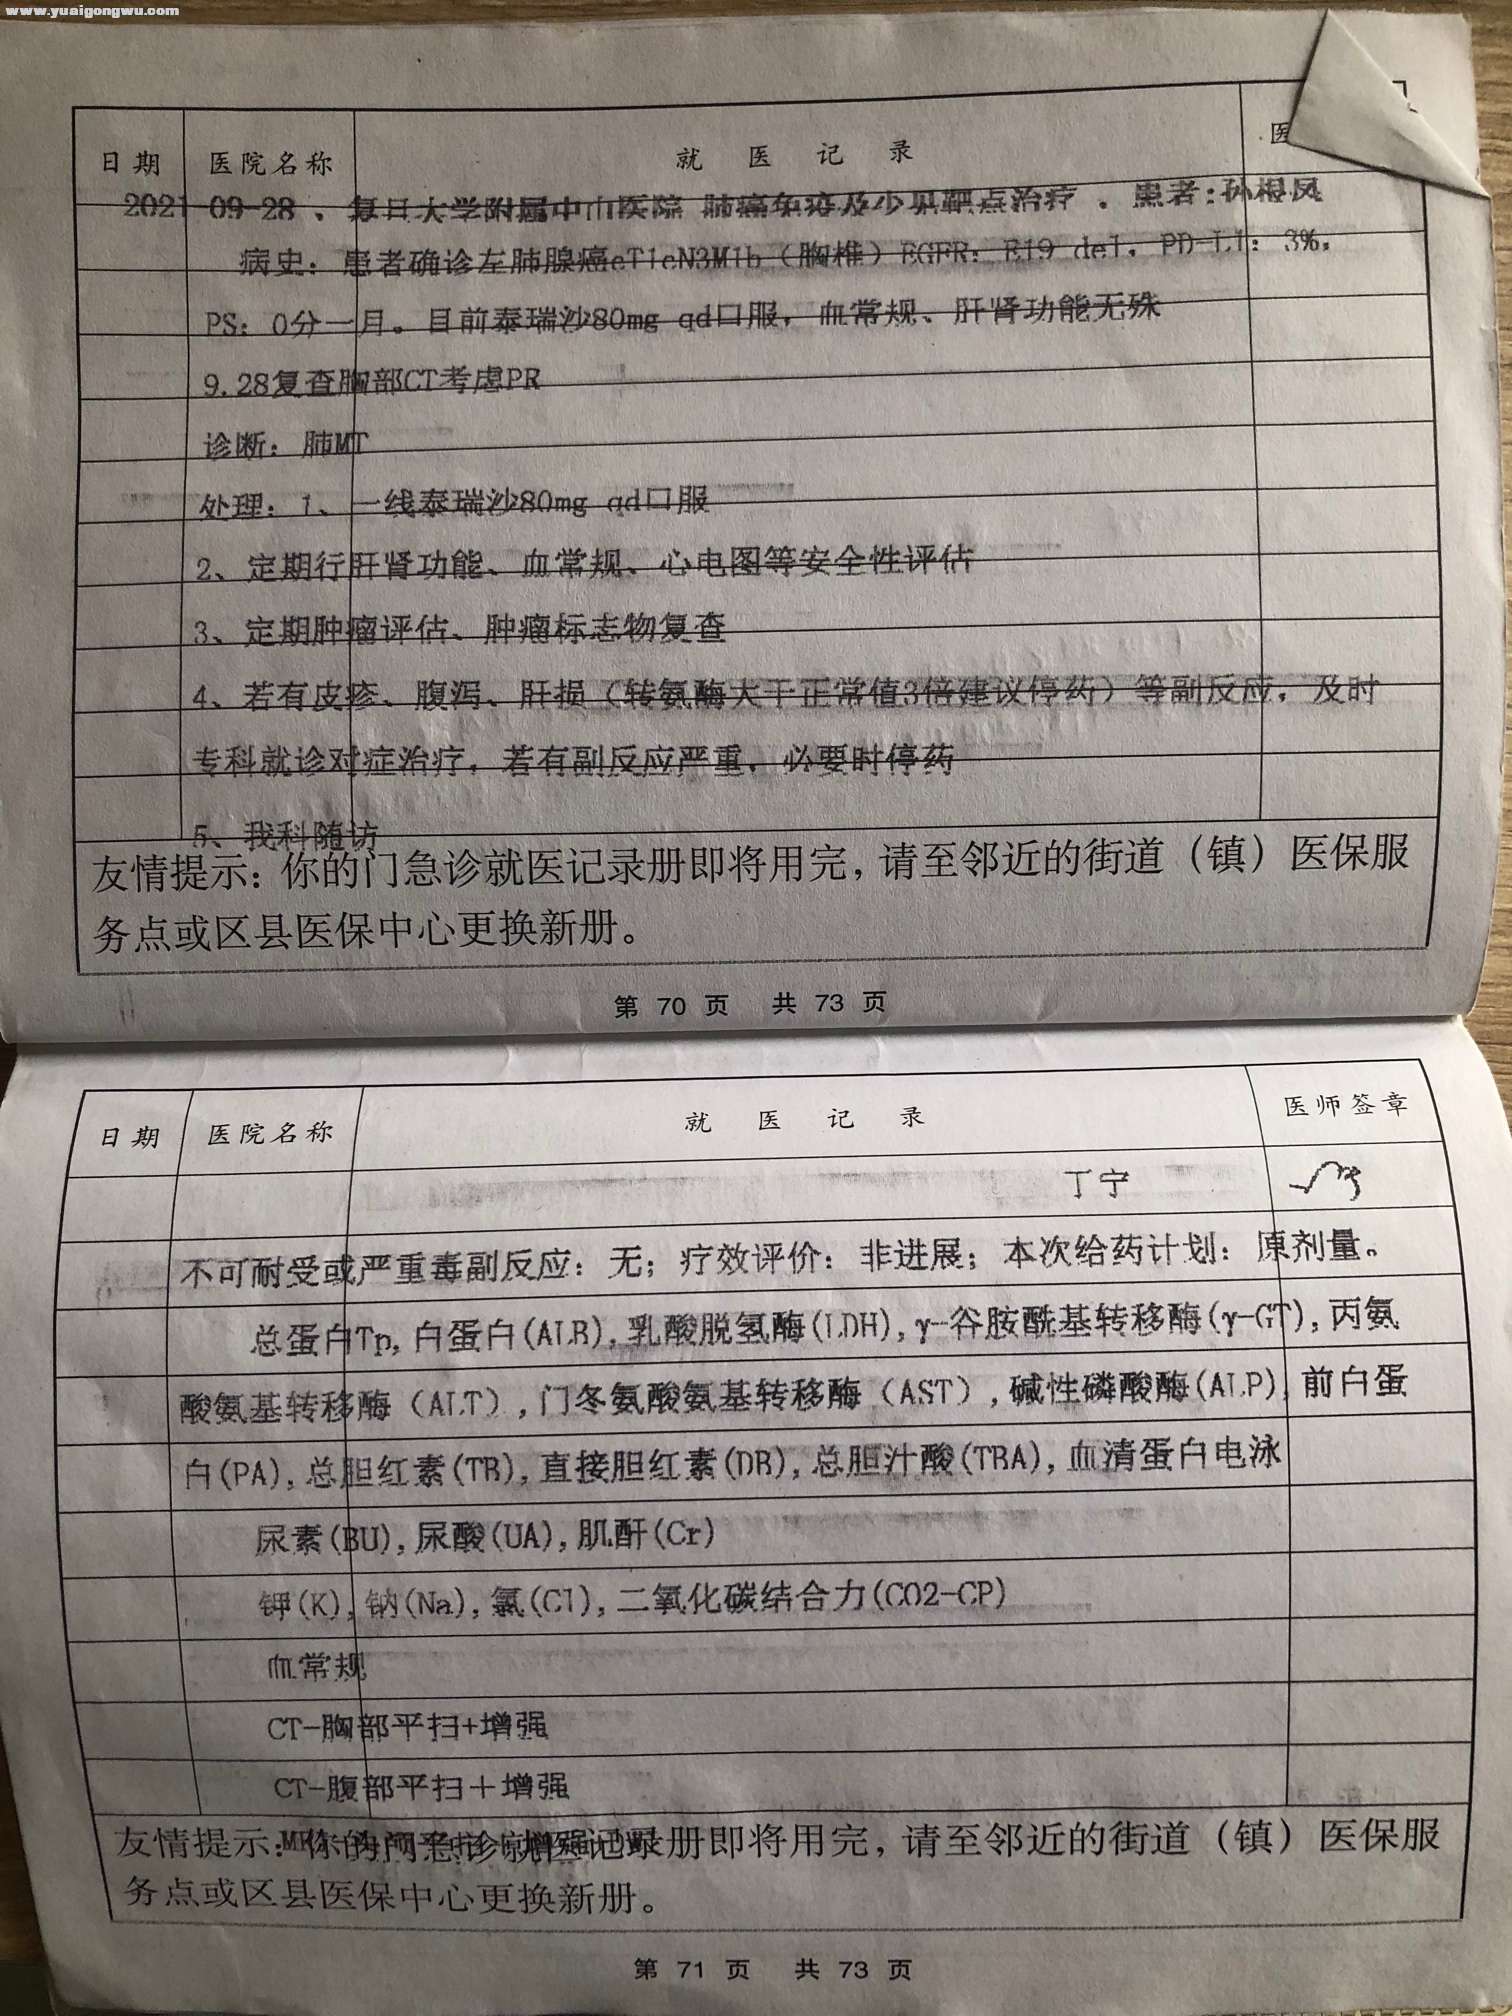 www.yuaigongwu.com
日期 医院名称 就医记录 医
2021-09-28 、复旦大学附属中山医院 肺癌免疫及少见靶点治疗 . 患者:孙根凤
病史：患者确诊左肺腺癌cT1cN3M1b（胸椎）EGFR：E19 del，PD-L1：3%，
PS：0分一月。目前泰瑞沙80mg qd口服，血常规、肝肾功能无殊
9.28复查胸部CT考虑PR
诊断：肺MT
处理：1、一线泰瑞沙80mg qd口服
2、定期行肝肾功能、血常规、心电图等安全性评估
3、定期肿瘤评估、肿瘤标志物复查
4、若有皮疹、腹泻、肝损（转氨酶大于正常值3倍建议停药）等副反应，及时
专科就诊对症治疗，若有副反应严重，必要时停药
5、我科随访
友情提示：你的门急诊就医记录册即将用完，请至邻近的街道（镇）医保服
务点或区县医保中心更换新册。
第 70 页 共 73 页
日期 医院名称 就医记录 医师签章
丁宁
不可耐受或严重毒副反应：无；疗效评价：非进展；本次给药计划：原剂量。
总蛋白Tp,白蛋白(ALB),乳酸脱氢酶(LDH),γ-谷胺酰基转移酶(γ-GT),丙氨
酸氨基转移酶（ALT）,门冬氨酸氨基转移酶（AST）,碱性磷酸酶(ALP),前白蛋
白(PA),总胆红素(TB),直接胆红素(DB),总胆汁酸(TBA),血清蛋白电泳
尿素(BU),尿酸(UA),肌酐(Cr)
钾(K),钠(Na),氯(Cl),二氧化碳结合力(CO2-CP)
血常规
CT-胸部平扫+增强
CT-腹部平扫＋增强
友情提示：你的门急诊就医记录册即将用完，请至邻近的街道（镇）医保服
务点或区县医保中心更换新册。
第 71 页 共 73 页